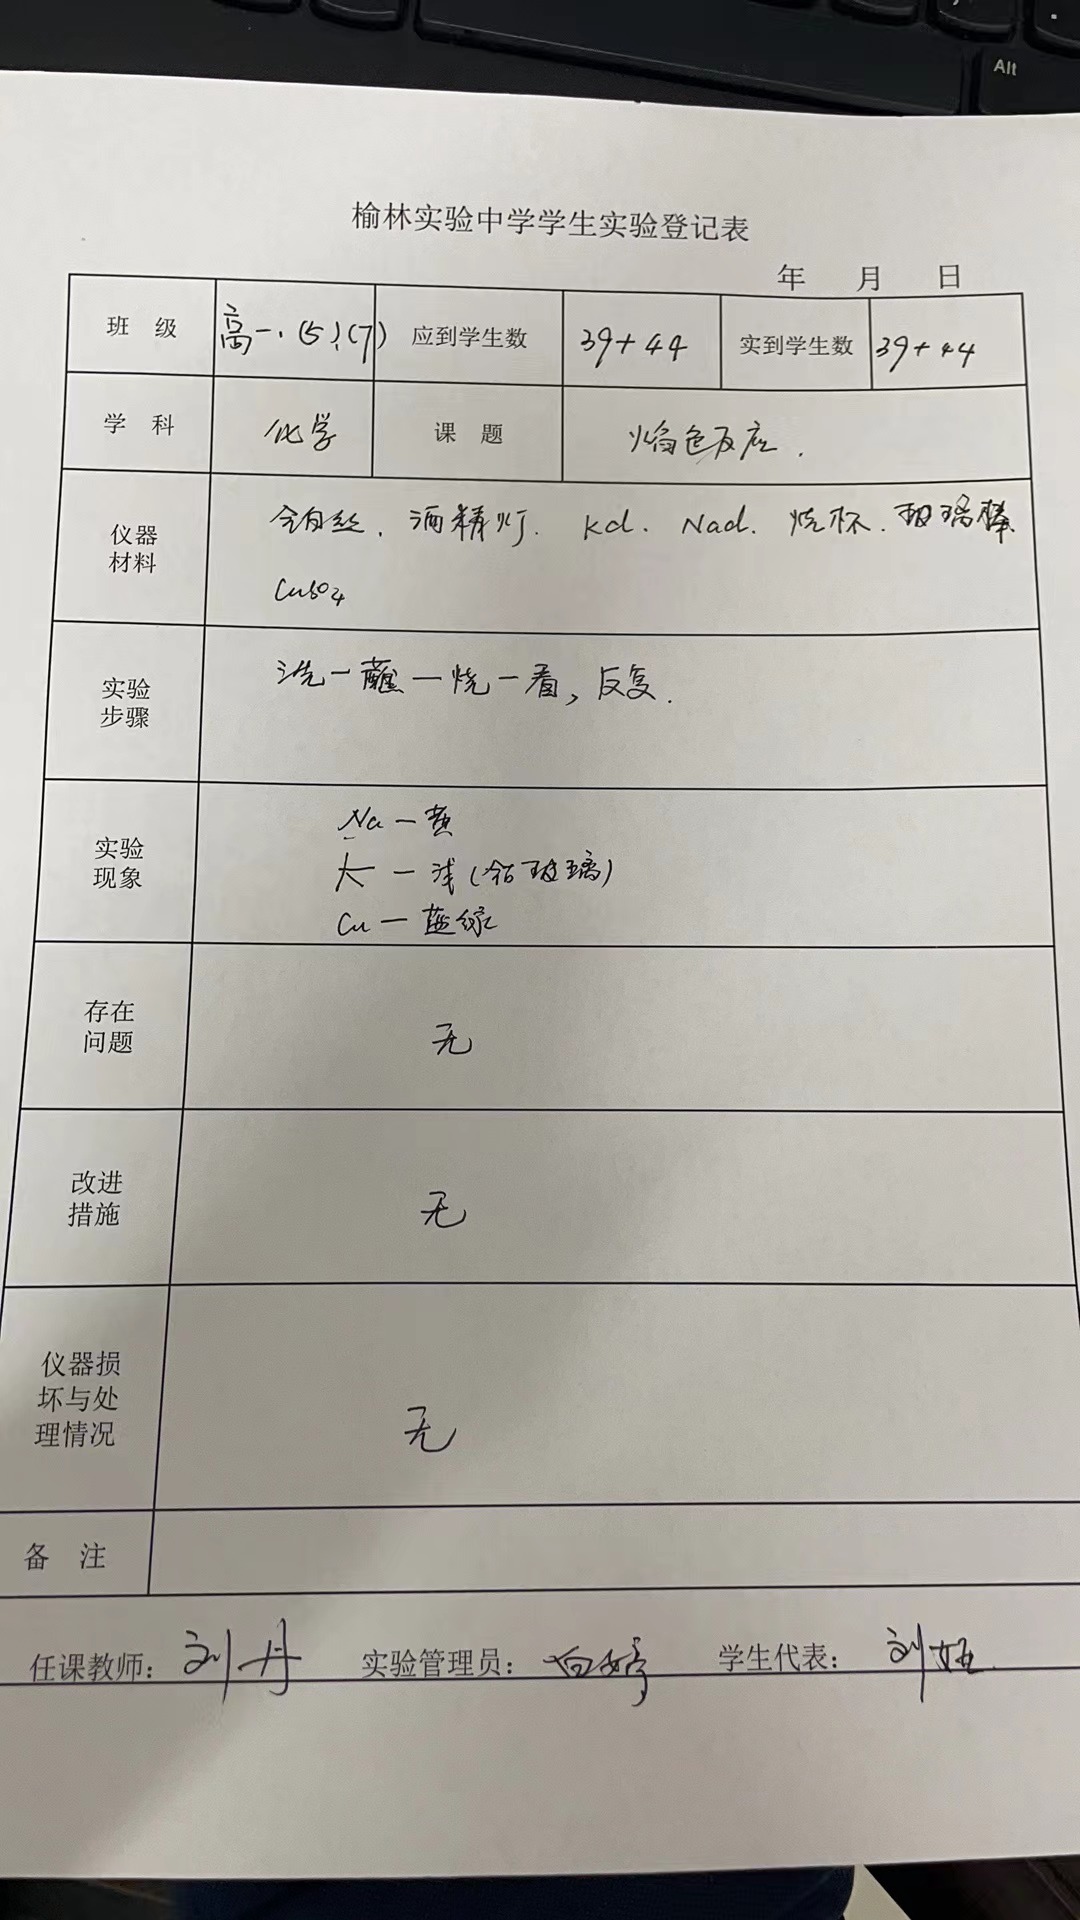 Alt
榆林实验中学学生实验登记表
年 月 日
班 级 高一.(5)、(7) 应到学生数 39+44 实到学生数 39+44
学 科 化学 课 题 焰色反应.
仪器材料 铂丝. 酒精灯. KCl. NaCl. 烧杯. 玻璃棒.
CuSO4
实验步骤 洗一蘸一烧一看, 反复.
实验现象 Na一黄
K一浅(钴玻璃)
Cu一蓝绿
存在问题 无
改进措施 无
仪器损坏与处理情况 无
备 注
任课教师: 刘丹 实验管理员: 白婷 学生代表: 刘